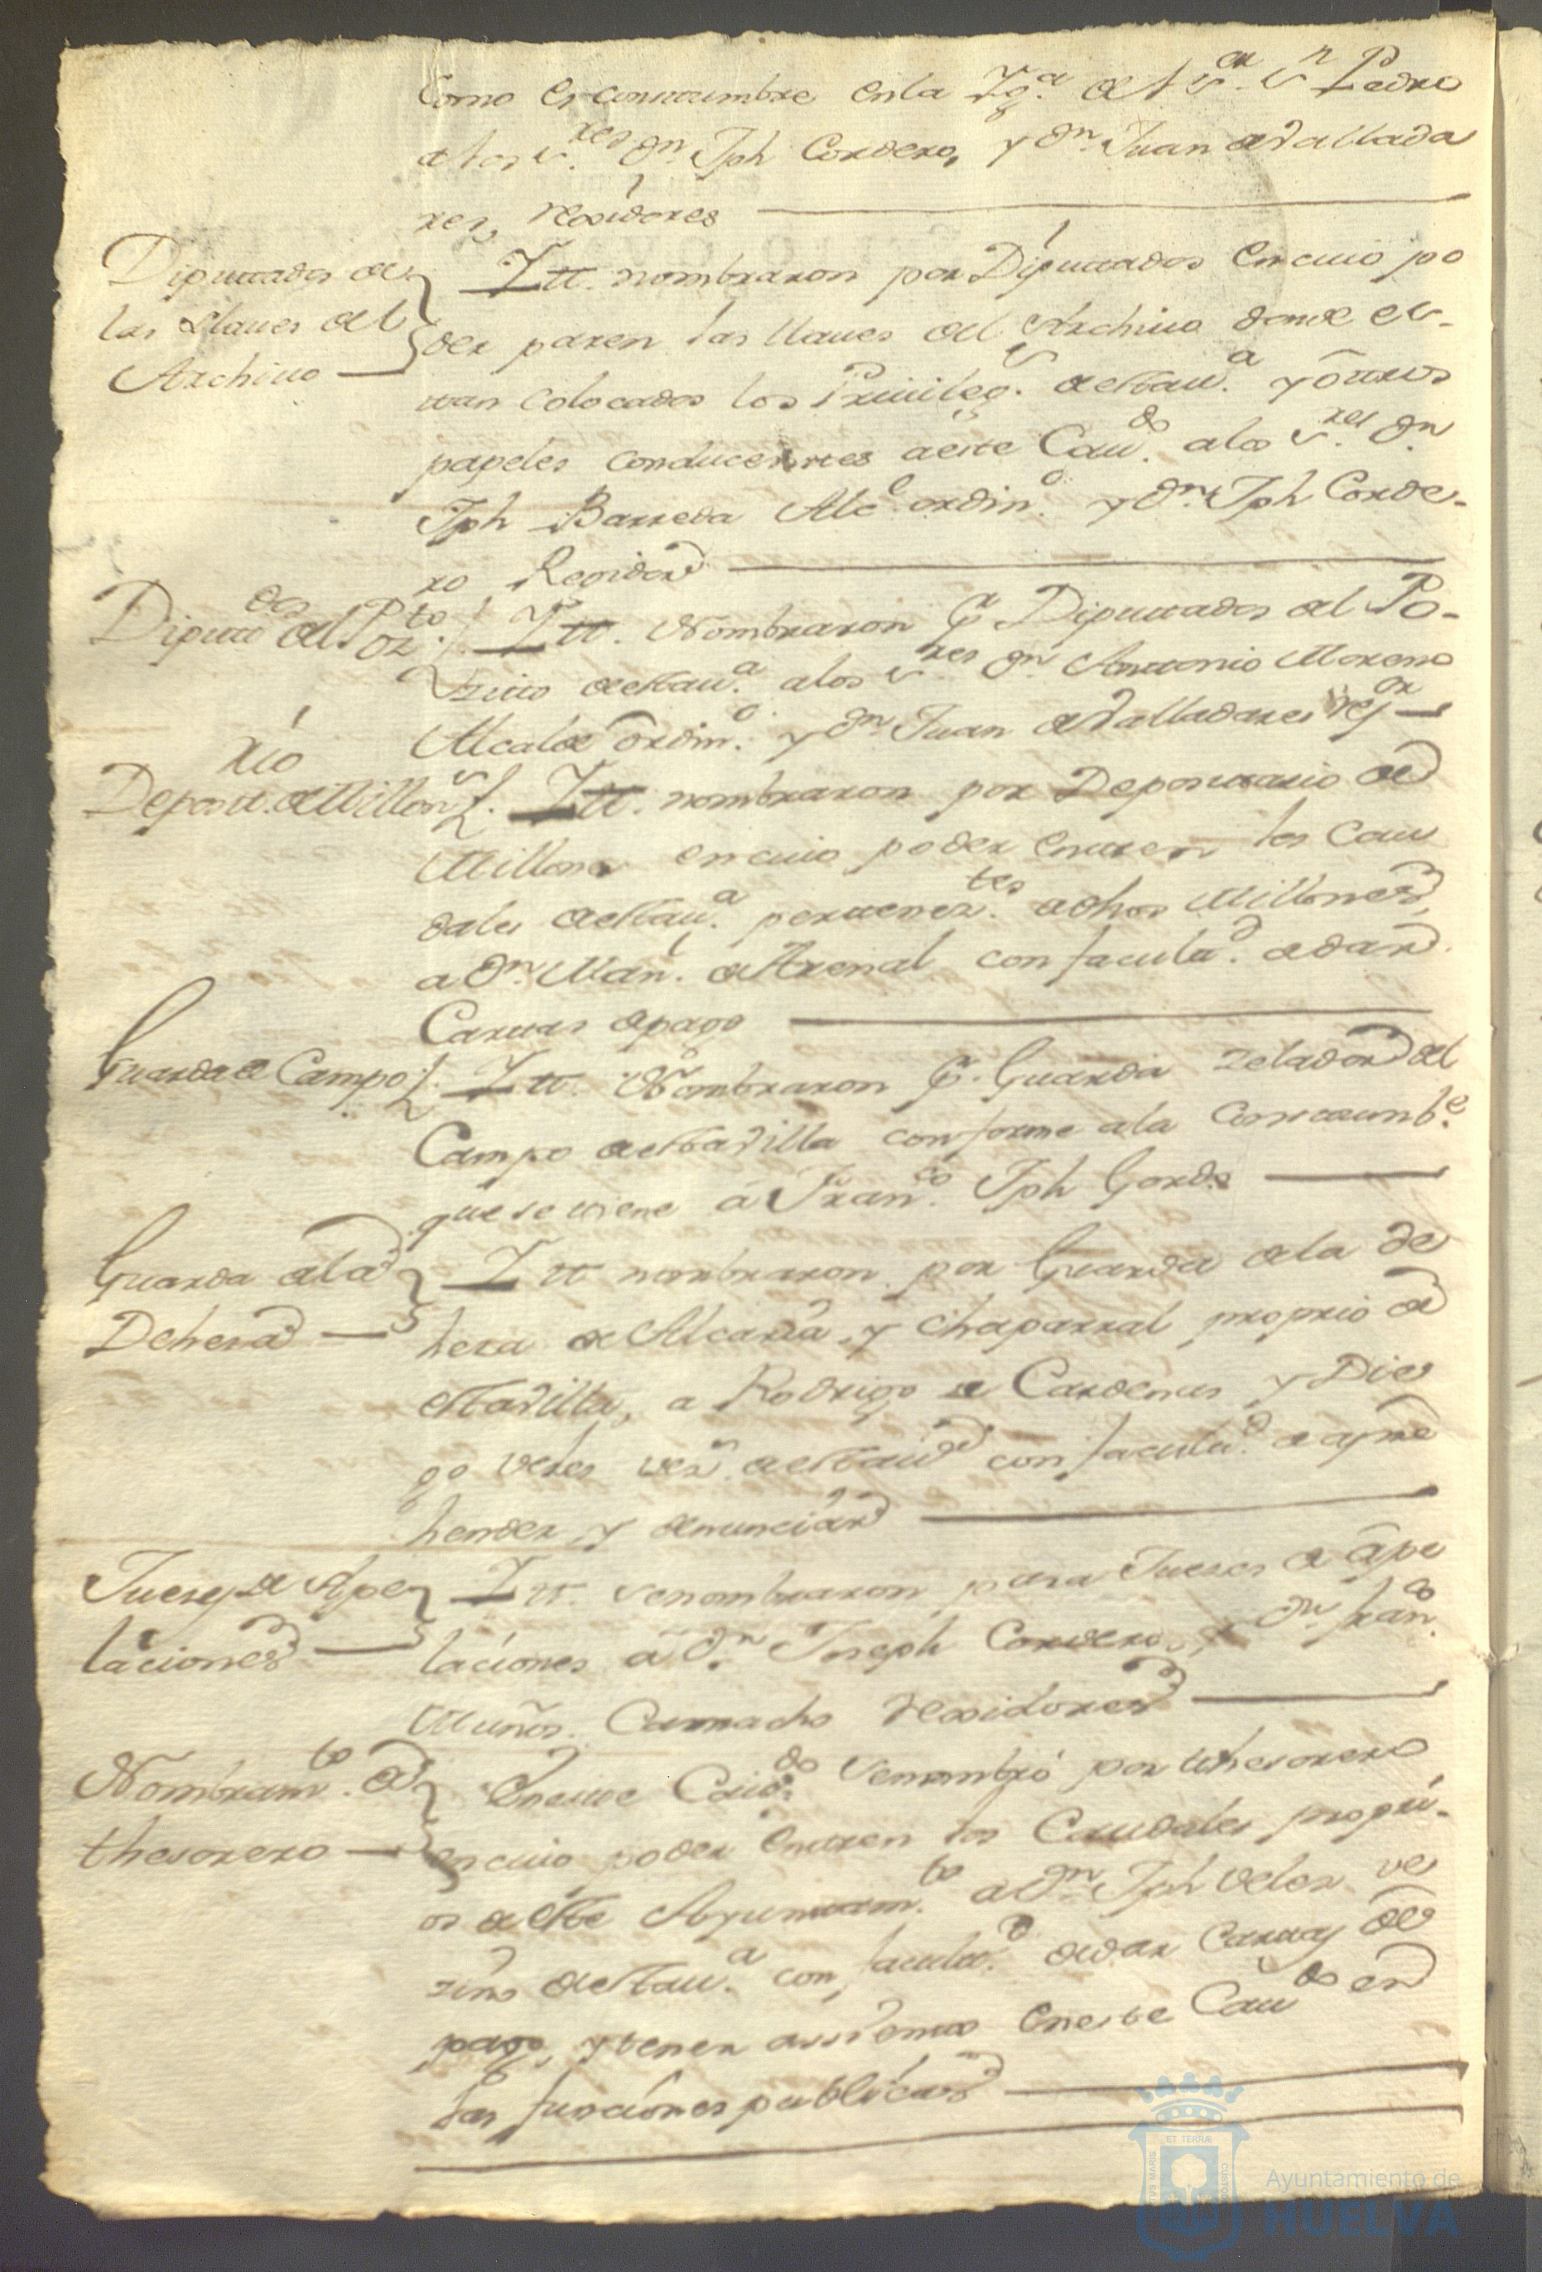 como es constumbre en la Yg.ª de el S.or S.n Pedro
a los S.res D.n Jph Cordero, y D.n Juan de Vallada
res, rexidores
Diputtados de
las Llaves del
Archivo
Itt. nombraron por Diputtados en cuio po
der paren las llaves del Archivo donde es-
ttan colocados los Privileg.s de esta v.ª y ôttros
papeles conducenttes a este Cav.do a los S.res D.n
Jph Barreda Alc.e ordin.o y D.n Jph Corde-
ro, Regidor
Diputt.dos del Pozto.
Itt. Nombraron p.r Diputtados del Po-
zitto de esta v.ª a los S.res D.n Anttonio Moreno
Alcalde ôrdin.o y D.n Juan de Valladares rej.or
Deposit.rio de Millon.s
Itt. nombraron por Deposittario de
Millones en cuio poder enttren los Cau
dales de esta v.ª pertenez.tes a dhos Millones,
a D.n Man.l de Arenal con faculta.d de dar
Carttas de pago
Guarda de Campo
Itt. Nombraron p.r Guarda zelador del
Campo de esta Villa conforme a la Consttumb.e
que se ttiene â Fran.co Jph Gordo
Guarda de la
Dehesa
Itt nombraron por Guarda de la de
hesa de Alcaria, y Chaparral proprio de
esta Villa, a Rodrigo de Cardenas, y Die
go Veles vez.s de esta v.ª con facultt.d de apre
hender, y denunciar
Jueses de Ape
laciones
Itt. se nombraron para Jueses de âpe
laciones â D.n Joseph Cordero, y D.n Fran.co
Muños Camacho rexidores
Nombram.to de
thesorero
En este Cav.do se nombró por thesorero
en cuio poder enttren los Caudales propri-
os de este Ayunttam.to a D.n Jph Velez ve
zino de esta v.ª con facultt.d de dar Carttas de
pago, y tener assiento en este Cav.do en
las funciones publicas
Ayuntamiento de
HUELVA